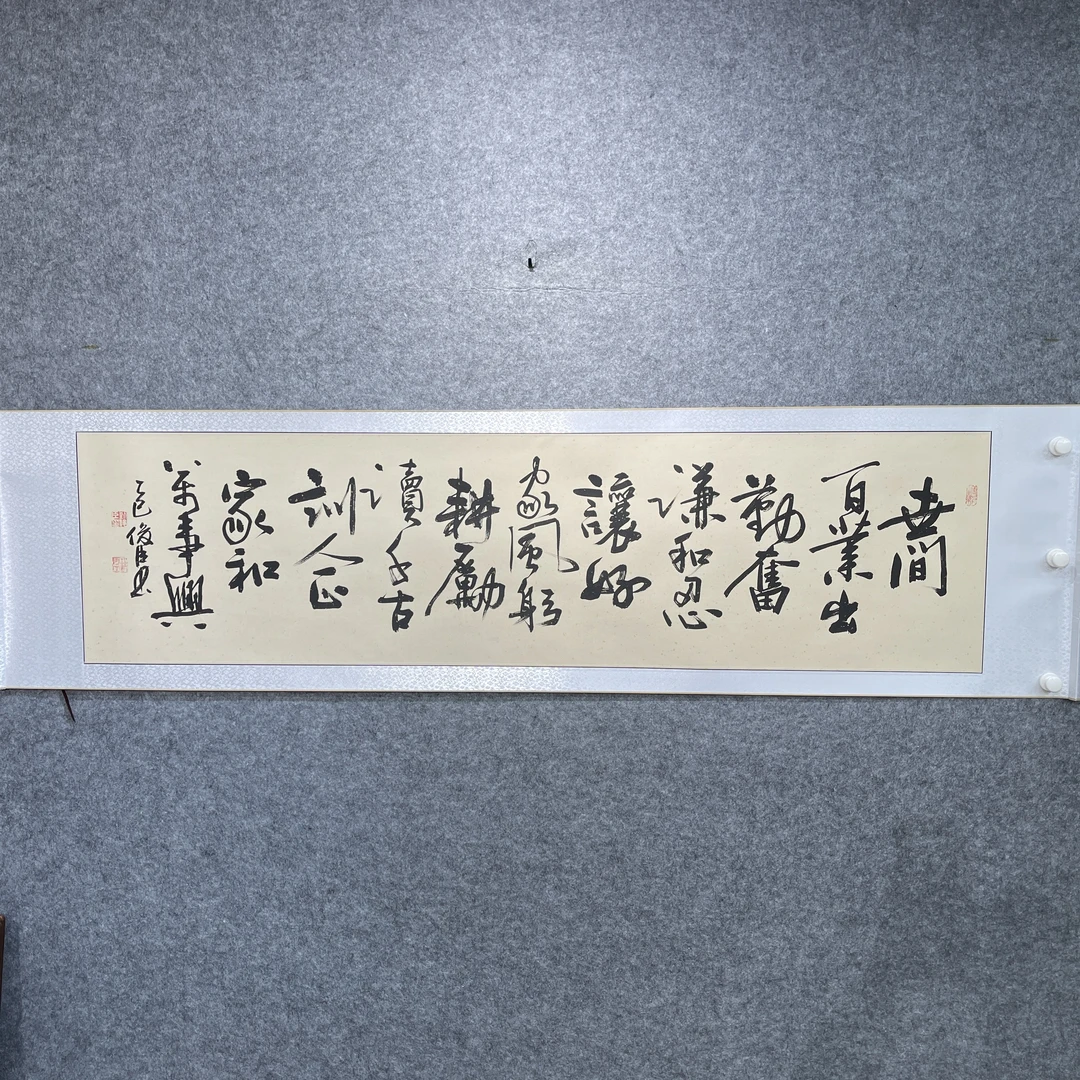 世間
百業出
勤奮
谦和忍
讓好
家風躬
耕勵
讀千古
訓人正
家和
萬事興
乙巳 俊臣書